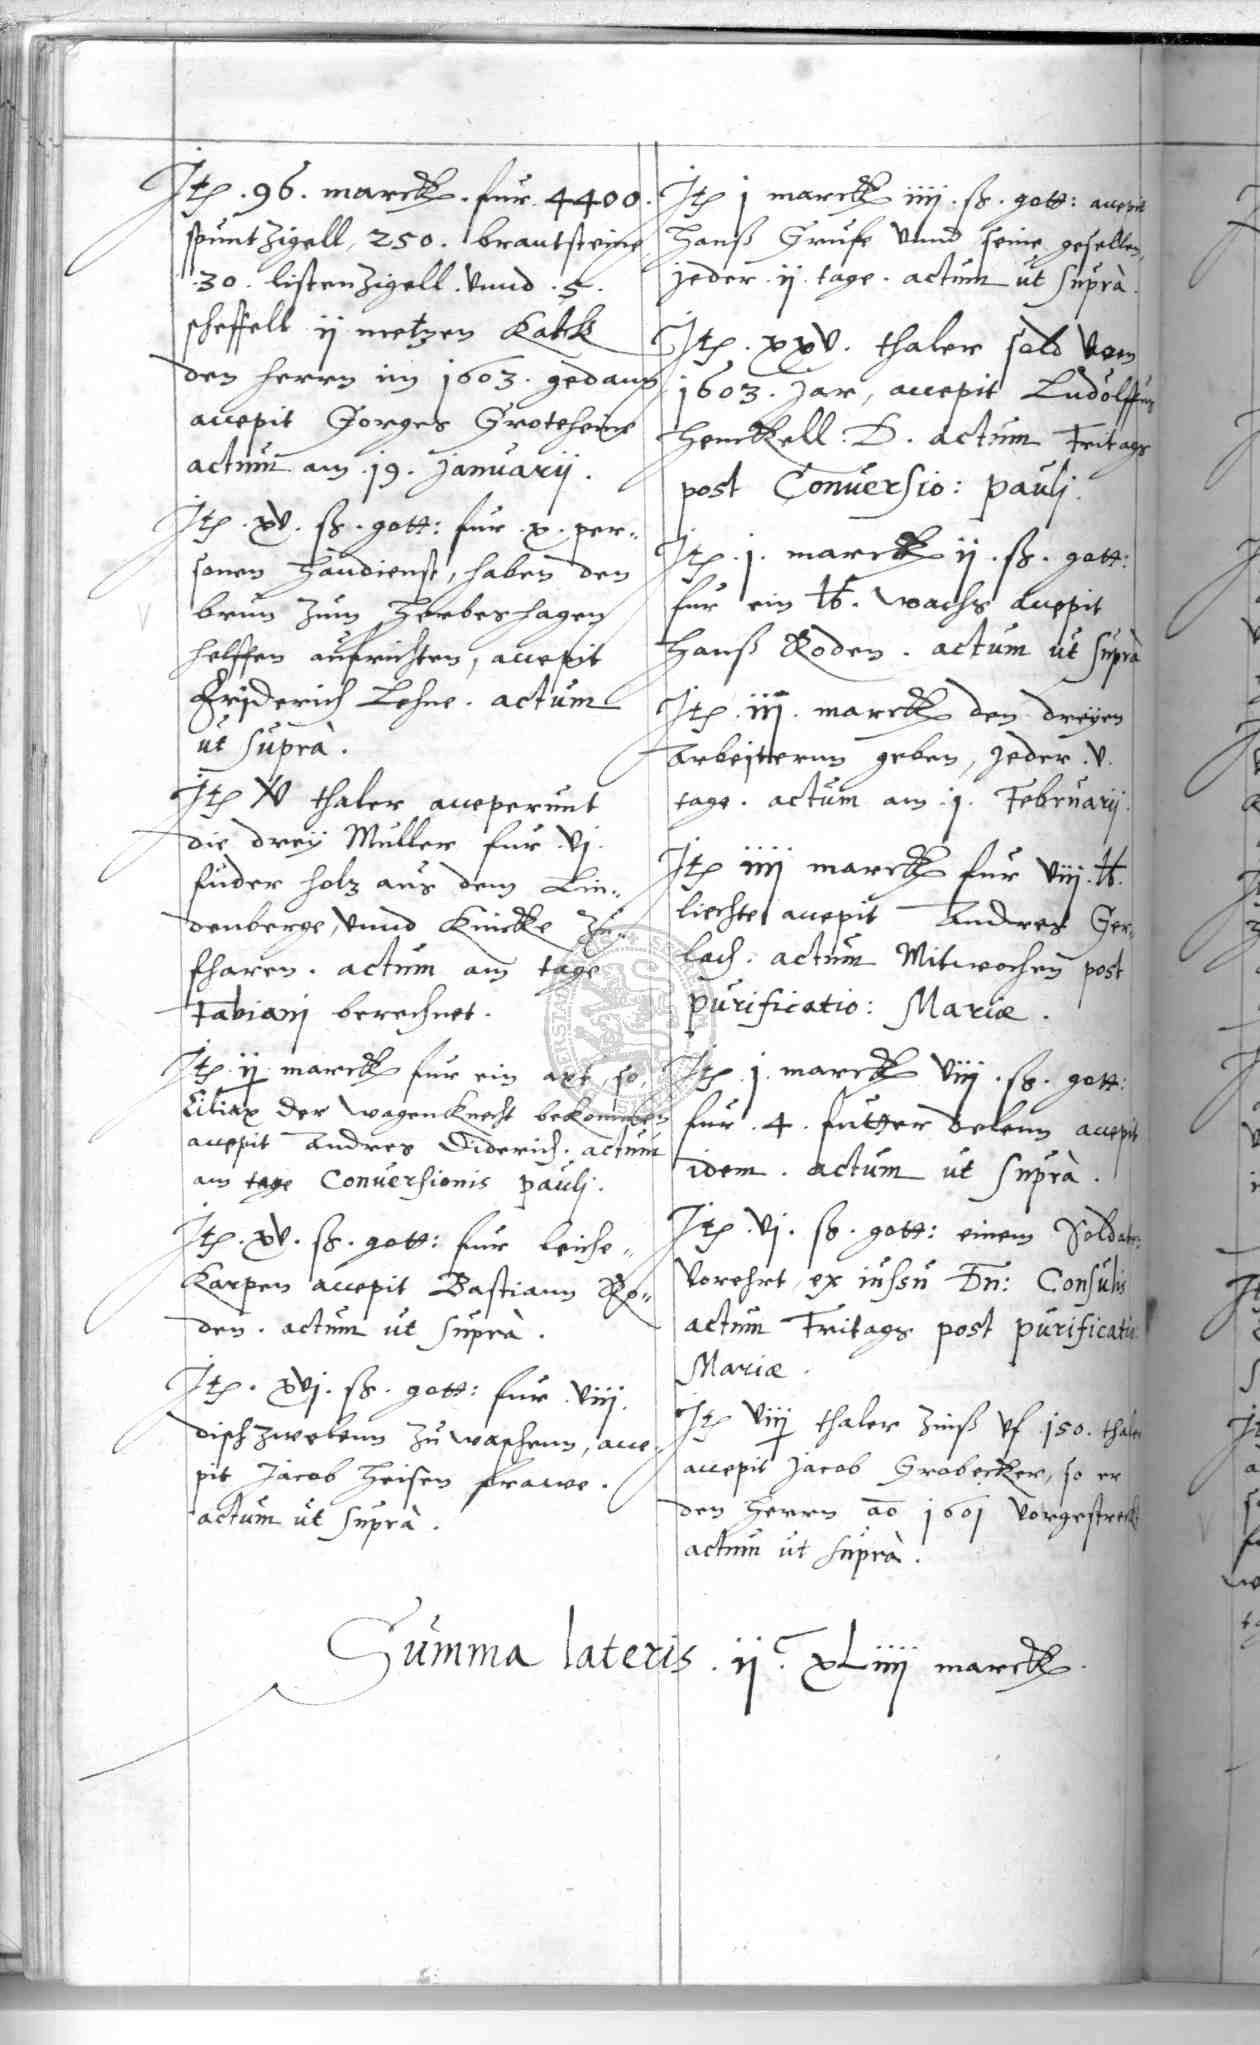 Jtem .96. marck. fur .4400.
spuntzigell, 250. brantsteine
.30. listenzigell .vnnd .5.
scheffell ij metzen Kalck
den herrn im 1603. gedann
accepit Gorges Groteheine
actum am .19. januarij.
Jtem .xv. ß. gott: fur .x. per=
sonen handienst, haben den
brun zum Herbeshagen
helffen auffrichten, accepit
Friderich Lehne. actum
ut suprà.
Jtem V thaler acceperunt
die dreÿ Muller fur .vj.
fuder holz aus dem Lin=
denberge, vnnd Kincke zu
fharen. actum am tage
Fabianj berechnet.
Jtem ij marck fur ein axt, so
Ciliax der wagenKnecht beKommen
accepit Andres Diderich. actum
am tage Conuersionis paulj.
Jtem .xv. ß. gott: fur leiche=
Karpen accepit Bastiann Ro=
den. actum ut suprà.
Jtem .xvj. ß. gott: fur .viij.
dischzwelenn zu waschenn, acce
pit Jacob Heisen frawe.
actum ut suprà.
Jtem j marck iiij .ß. gott: accepit
Hanß Grufe vnnd seine gesellen,
jeder .ij. tage. actum ut suprà.
Jtem .xxv. thaler sold vom
1603. jar, accepit Ludolffus
Henckell .D. actum Fritags
post Conuersio: paulj.
Jtem .j. marck ij .ß. gott:
fur ein ℔. wachs accepit
Hanß Roden. actum ut suprà
Jtem .iij. marck den dreÿen
Arbeitternn geben, jeder .v.
tage. actum am .j. Februarij.
Jtem iiij marck fur viij.℔.
liechte accepit Andres Ger=
lach. actum Mitwochen post
purificatio: Mariæ.
Jtem .j. marck viij .ß. gott:
fur .4. futter delenn accepit
idem. actum ut suprà.
Jtem .vj. ß. gott: einem Soldaten
vorehrt, ex iussu Dn: Consulis
actum Fritags post purificatio:
Mariæ.
Jtem viij thaler zinß vf .150. thaler
accepit Jacob Grobecker, so er
den herrn ao 1601 vorgestreckt
actum ut suprà.
Summa lateris .ij C. xLiiij marck.